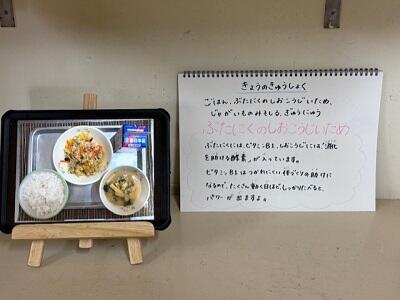 きょうのきゅうしょく
ごはん、ぶたにくのしおこうじいため、
じゃがいものみそしる、ぎゅうにゅう
ぶたにくのしおこうじいため
ぶたにくには、ビタミンB1、しおこうじには、"消化
を助ける酵素"が入っています。
ビタミンB1はつかれにくい体づくりの助けに
なるので、たくさん動く日ほど、しっかりたべると、
パワーが出ますよ。